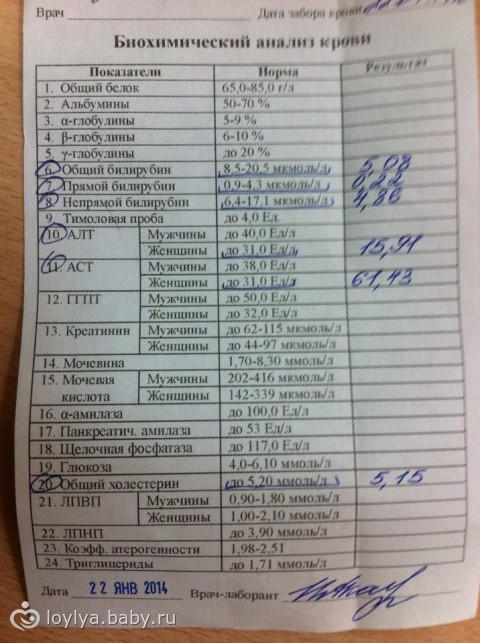 Врач Дата забора крови
Биохимический анализ крови
Показатели Норма Результат
1. Общий белок 65,0-85,0 г/л
2. Альбумины 50-70 %
3. α-глобулины 5-9 %
4. β-глобулины 6-10 %
5. γ-глобулины до 20 %
6. Общий билирубин 8,5-20,5 мкмоль/л 5,08
7. Прямой билирубин 0,9-4,3 мкмоль/л 0,22
8. Непрямой билирубин 6,4-17,1 мкмоль/л 4,86
9. Тимоловая проба до 4,0 Ед.
10. АЛТ Мужчины до 40,0 Ед/л
Женщины до 31,0 Ед/л 15,91
11. АСТ Мужчины до 38,0 Ед/л
Женщины до 31,0 Ед/л 61,43
12. ГГПТ Мужчины до 50,0 Ед/л
Женщины до 32,0 Ед/л
13. Креатинин Мужчины до 62-115 мкмоль/л
Женщины до 44-97 мкмоль/л
14. Мочевина 1,70-8,30 ммоль/л
15. Мочевая Мужчины 202-416 мкмоль/л
кислота Женщины 142-339 мкмоль/л
16. α-амилаза до 100,0 Ед/л
17. Панкреатич. амилаза до 53 Ед/л
18. Щелочная фосфатаза до 117,0 Ед/л
19. Глюкоза 4,0-6,10 ммоль/л
20. Общий холестерин до 5,20 ммоль/л 5,15
21. ЛПВП Мужчины 0,90-1,80 ммоль/л
Женщины 1,00-2,10 ммоль/л
22. ЛПНП до 3,90 ммоль/л
23. Коэфф. атерогенности 1,98-2,51
24. Триглицериды до 1,71 ммоль/л
Дата 22 ЯНВ 2014 Врач-лаборант
loylya.baby.ru